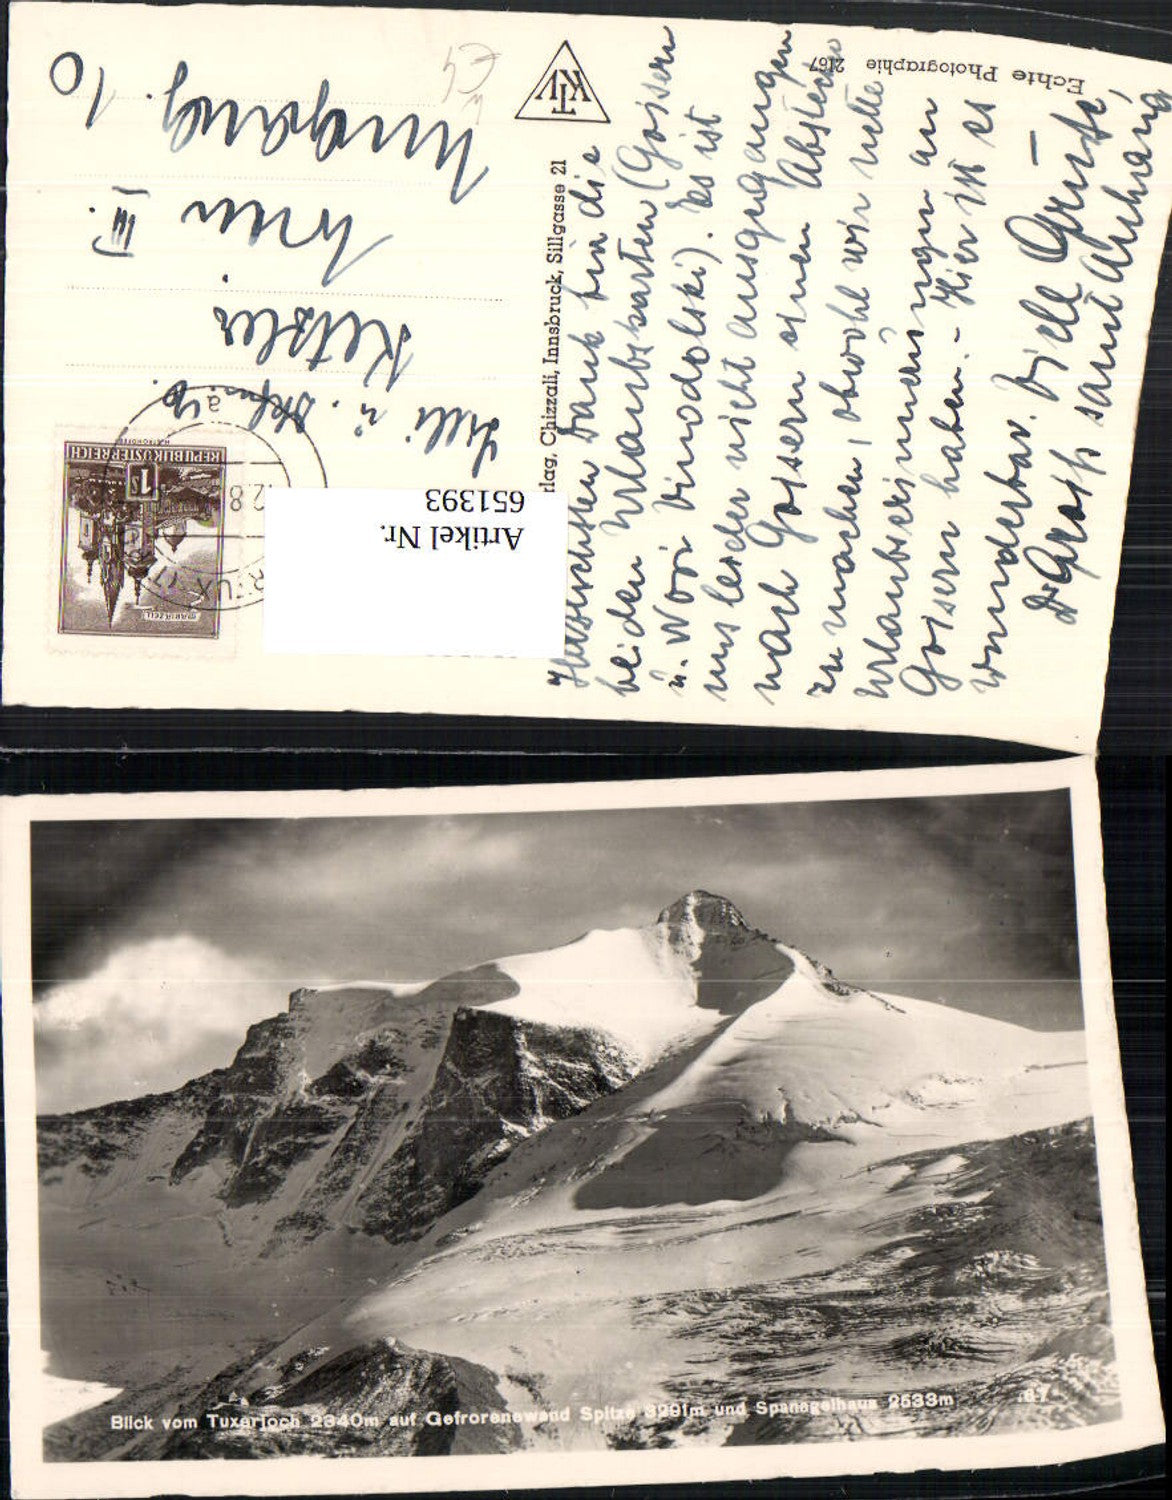 Echte Photographie 2167
KTV
Verlag, Chizzali, Innsbruck, Sillgasse 21
Herzlichsten Dank für die
beiden Urlaubskarten (Goisern
u. Novi Vinodolski). Es ist
uns leider nicht ausgegangen
nach Goisern einen Abstecher
zu machen, obwohl wir nette
Urlaubserinnerungen an
Goisern haben. - Hier ist es
wunderbar. Viele Grüße, -
Dr Groß samt Anhang
u.
Ketzler
Wien III.
Ungarg. 10
REPUBLIK ÖSTERREICH
1S
MARIAZELL
TUX
Artikel Nr.
651393
Blick vom Tuxerjoch 2340m auf Gefrorenewand Spitze 3291m und Spannagelhaus 2533m